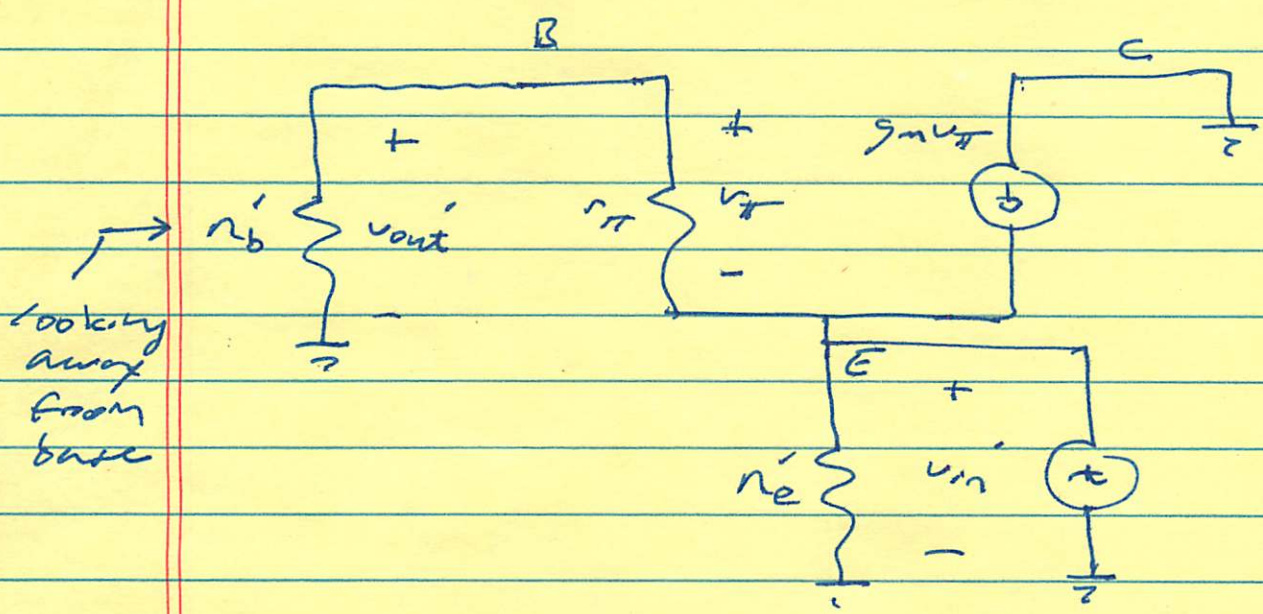 B
C
+
+
gmvπ
rb'
vout'
rπ
vπ
-
-
looking
away
from
base
E
+
re'
vin'
-